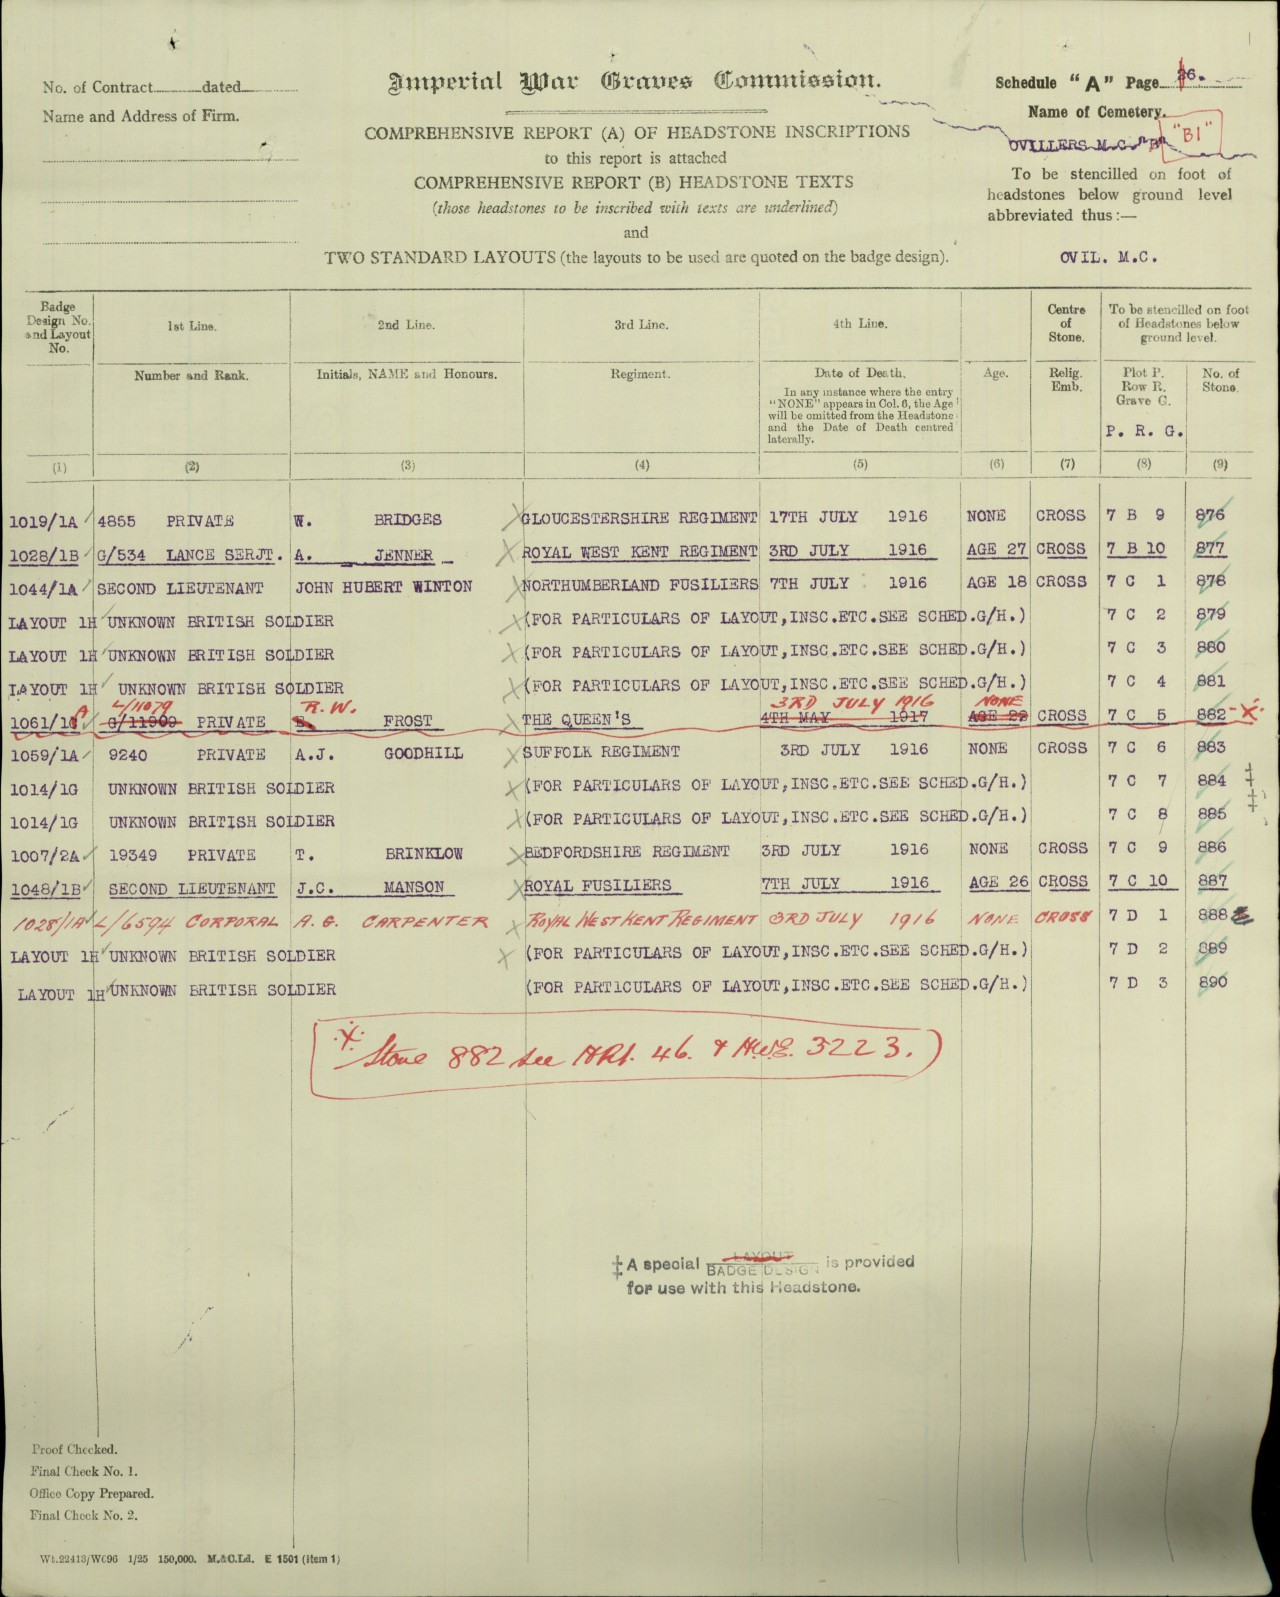 Imperial War Graves Commission.
No. of Contract dated
Name and Address of Firm.
Schedule "A" Page 6.
Name of Cemetery.
OVILLERS M.C. "B" "B1"
COMPREHENSIVE REPORT (A) OF HEADSTONE INSCRIPTIONS
to this report is attached
COMPREHENSIVE REPORT (B) HEADSTONE TEXTS
(those headstones to be inscribed with texts are underlined)
and
TWO STANDARD LAYOUTS (the layouts to be used are quoted on the badge design).
To be stencilled on foot of
headstones below ground level
abbreviated thus :—
OVIL. M.C.
Badge Design No. and Layout No.
1st Line.
2nd Line.
3rd Line.
4th Line.
Centre of Stone.
To be stencilled on foot of Headstones below ground level.
Number and Rank.
Initials, NAME and Honours.
Regiment.
Date of Death.
In any instance where the entry
"NONE" appears in Col. 6, the Age
will be omitted from the Headstone
and the Date of Death centred
laterally.
Age.
Relig. Emb.
Plot P.
Row R.
Grave G.
P. R. G.
No. of Stone.
(1) (2) (3) (4) (5) (6) (7) (8) (9)
1019/1A 4855 PRIVATE W. BRIDGES GLOUCESTERSHIRE REGIMENT 17TH JULY 1916 NONE CROSS 7 B 9 876
1028/1B G/534 LANCE SERJT. A. JENNER ROYAL WEST KENT REGIMENT 3RD JULY 1916 AGE 27 CROSS 7 B 10 877
1044/1A SECOND LIEUTENANT JOHN HUBERT WINTON NORTHUMBERLAND FUSILIERS 7TH JULY 1916 AGE 18 CROSS 7 C 1 878
LAYOUT 1H UNKNOWN BRITISH SOLDIER (FOR PARTICULARS OF LAYOUT,INSC.ETC.SEE SCHED.G/H.) 7 C 2 879
LAYOUT 1H UNKNOWN BRITISH SOLDIER (FOR PARTICULARS OF LAYOUT,INSC.ETC.SEE SCHED.G/H.) 7 C 3 880
LAYOUT 1H UNKNOWN BRITISH SOLDIER (FOR PARTICULARS OF LAYOUT,INSC.ETC.SEE SCHED.G/H.) 7 C 4 881
A L/11079 R.W. 3RD JULY 1916 NONE
1061/1 G/11909 PRIVATE FROST THE QUEEN'S 4TH MAY 1917 AGE 22 CROSS 7 C 5 882
1059/1A 9240 PRIVATE A.J. GOODHILL SUFFOLK REGIMENT 3RD JULY 1916 NONE CROSS 7 C 6 883
1014/1G UNKNOWN BRITISH SOLDIER (FOR PARTICULARS OF LAYOUT,INSC.ETC.SEE SCHED.G/H.) 7 C 7 884 ‡
1014/1G UNKNOWN BRITISH SOLDIER (FOR PARTICULARS OF LAYOUT,INSC.ETC.SEE SCHED.G/H.) 7 C 8 885 ‡
1007/2A 19349 PRIVATE T. BRINKLOW BEDFORDSHIRE REGIMENT 3RD JULY 1916 NONE CROSS 7 C 9 886
1048/1B SECOND LIEUTENANT J.C. MANSON ROYAL FUSILIERS 7TH JULY 1916 AGE 26 CROSS 7 C 10 887
1028/1A L/6594 CORPORAL A. G. CARPENTER ROYAL WEST KENT REGIMENT 3RD JULY 1916 NONE CROSS 7 D 1 888
LAYOUT 1H UNKNOWN BRITISH SOLDIER (FOR PARTICULARS OF LAYOUT,INSC.ETC.SEE SCHED.G/H.) 7 D 2 889
LAYOUT 1H UNKNOWN BRITISH SOLDIER (FOR PARTICULARS OF LAYOUT,INSC.ETC.SEE SCHED.G/H.) 7 D 3 890
Stone 882 see 46. & 3223.
‡ A special LAYOUT BADGE DESIGN is provided
for use with this Headstone.
Proof Checked.
Final Check No. 1.
Office Copy Prepared.
Final Check No. 2.
Wt.22413/W696 1/25 150,000. M.&C.Ld. E 1501 (item 1)